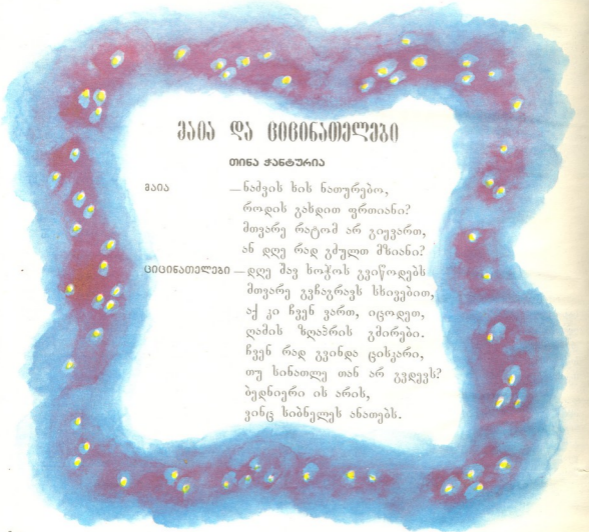 მაია და ციცინათელები
თინა ჭანტურია
მაია —ნაძვის ხის ნათურებო,
როდის გახდით ფრთიანი?
მთვარე რატომ არ გიყვართ,
ან დღე რად გძულთ მზიანი?
ციცინათელები —დღე შავ ხოჭოს გვიწოდებს
მთვარე გვჩაგრავს სხივებით,
აქ კი ჩვენ ვართ, იცოდეთ,
ღამის ზღაპრის გმირები.
ჩვენ რად გვინდა ცისკარი,
თუ სინათლე თან არ გვდევს?
ბედნიერი ის არის,
ვინც სიბნელეს ანათებს.